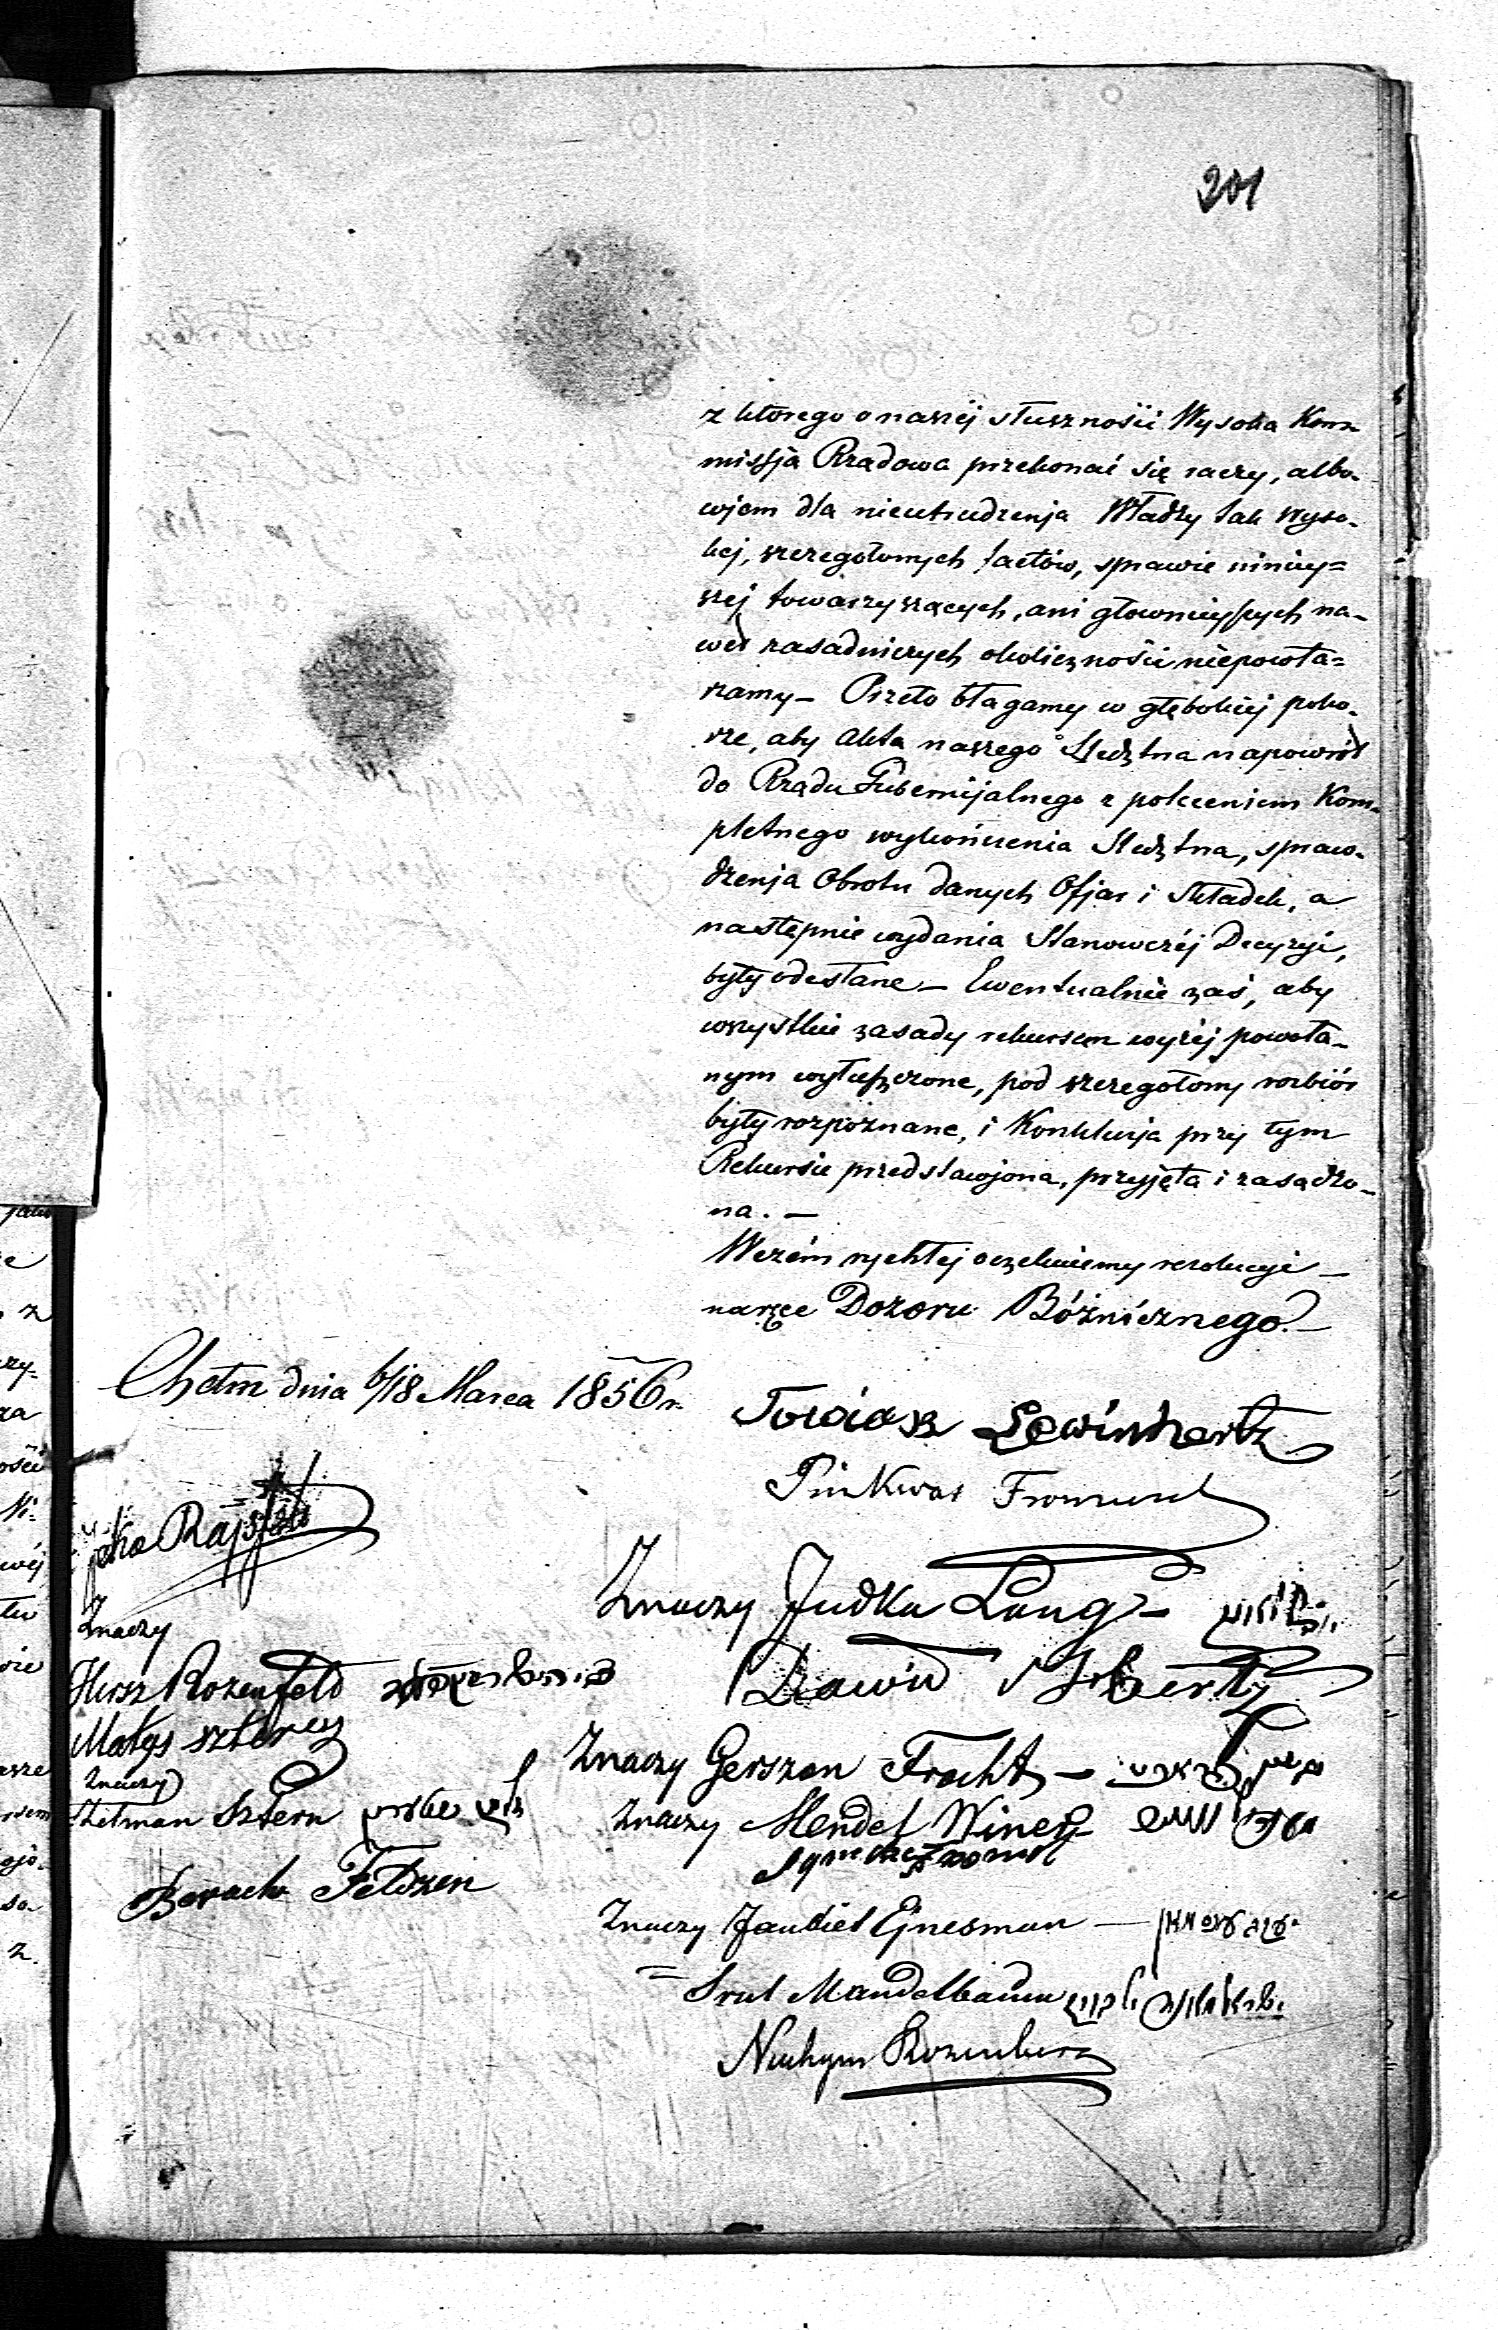 201
z ktorego o naszéj słusznośći Wysoka Kom-
missja Rządowa przekonać się raczy, albo-
wjem dla nieutrudzenja Władzy tak wyso-
kej, szczegołowych factów, sprawie niniey=
szej towarzyszących, ani głownieyszych na-
wet zasadniczych okolicznośći niepowta=
rzamy — Przeto błagamy w głębokiéj poko-
rze, aby Akta naszego Śledztna napowrót
do Rządu Gubernijalnego z poleceniem Kom-
pletnego wykończenia Śledztna, spraw-
dzenja Obrotu danych Ofjar i Składek, a
następnie wydania Stanowczéj Decyzyi,
były odesłane — Ewentualnie zaś, aby
wszystkie zasady rekursem wyżéj powoła-
nym wyłuszczone, pod szczegołowy rozbiór
były rozpoznane, i Konkluzja przy tym
Rekursie przedstawjona, przyjęta i zasądzo-
na. —
W czém rychłej oczekuiemy rezolucyi —
naręce Dozoru Bóżnicznego. —
Chełm dnia 6/18 Marca 1856 r.
Towiasz Lewinhertz
Pinkwas Fromund
Znaczy Judka Lang —
Znaczy
Hersz Rozenfeld
Dawid
Matys Sztern
Znaczy Gerszon Frocht —
Znaczy
Sztern
Znaczy Mendel Winer
Boruch Feldzen
Znaczy Jankiel Ejnesman —
= Srul Mandelbaum
Nuchym Rozenberg